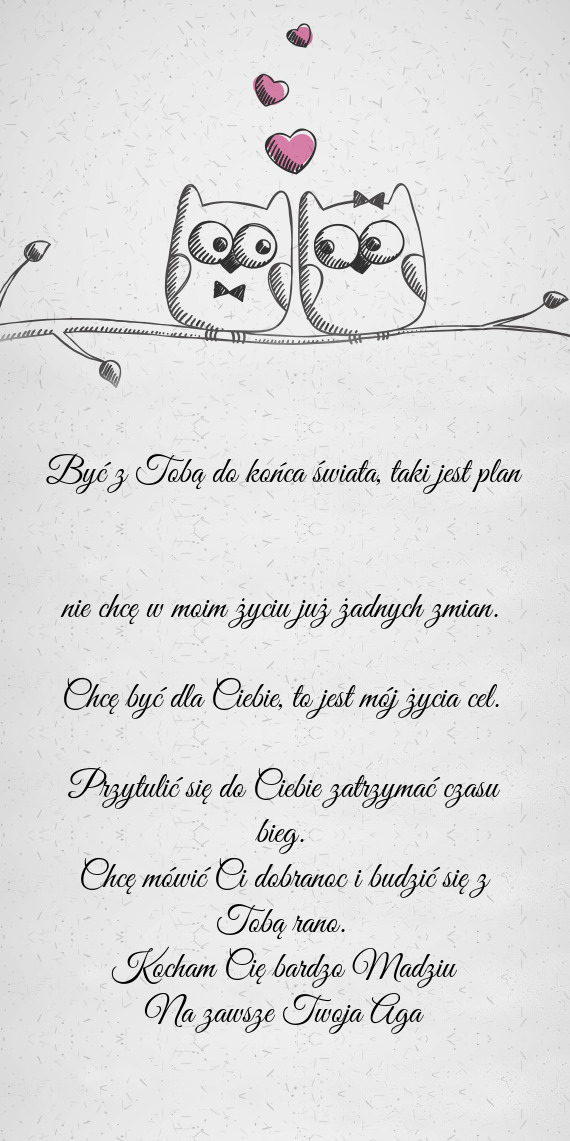 Być z Tobą do końca świata, taki jest plan
nie chcę w moim życiu już żadnych zmian.
Chcę być dla Ciebie, to jest mój życia cel.
Przytulić się do Ciebie zatrzymać czasu
bieg.
Chcę mówić Ci dobranoc i budzić się z
Tobą rano.
Kocham Cię bardzo Madziu
Na zawsze Twoja Aga